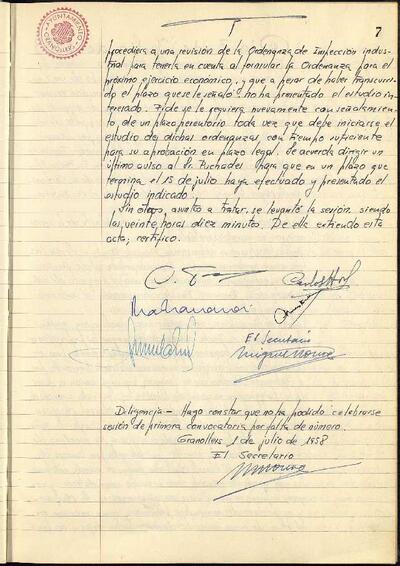 7
AYUNTAMIENTO GRANOLLERS
procediera a una revisión de la Ordenanza de Inspección indus-
trial para tenerla en cuenta al formular la Ordenanza para el
próximo ejercicio económico, y que a pesar de haber transcurri-
do el plazo que se le señaló no ha presentado el estudio in-
teresado. Pide se le requiera nuevamente con señalamien-
to de un plazo perentorio toda vez que debe iniciarse el
estudio de dichas ordenanzas con tiempo suficiente
para su aprobación en plazo legal. Se acuerda dirigir un
último aviso al Sr. Puchades para que en un plazo que
termina el 15 de julio haya efectuado y presentado el
estudio indicado.
Sin otros asuntos a tratar, se levantó la sesión, siendo
las veinte horas diez minutos. De ella extiendo esta
acta; certifico.
El Secretario
Diligencia - Hago constar que no ha podido celebrarse
sesión de primera convocatoria por falta de número.
Granollers 1 de julio de 1958
El Secretario